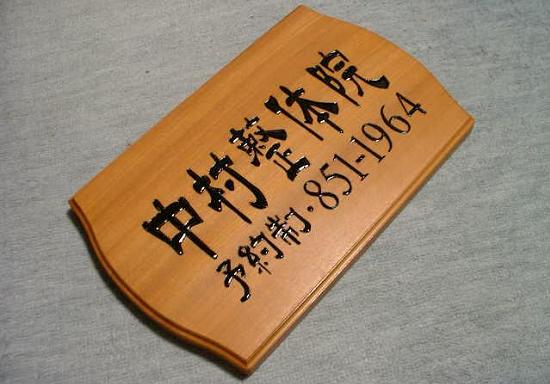 中村整体院
予約制・851-1964